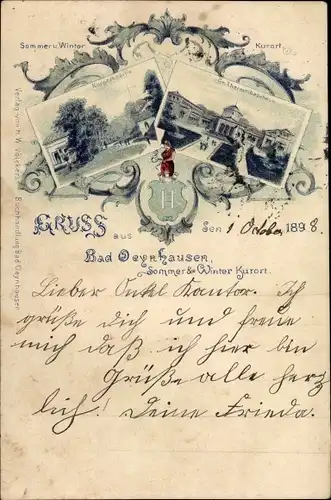 Sommer u. Winter Kurort
Verlag von H. W. Völcker's Buchhandlung Bad Oeynhausen
GRUSS
aus
Den 1 October 1898.
Bad Oeynhausen,
Sommer & Winter Kurort.
H
Lieber Onkel Kantor. Ich
grüße dich und freue
mich daß ich hier bin
Grüße alle herz
lich! Deine Frieda.